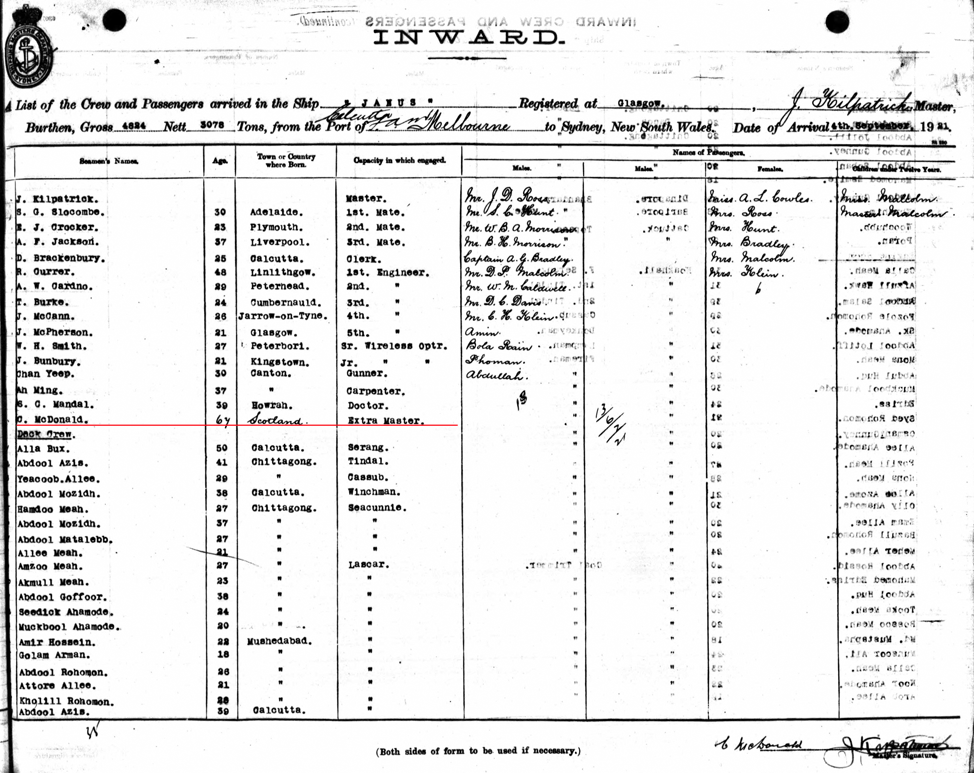 INWARD.
List of the Crew and Passengers arrived in the Ship " JANUS " Registered at Glasgow, J. Kilpatrick Master,
Burthen, Gross 4824 Nett 3078 Tons, from the Port of Calcutta Melbourne to Sydney, New South Wales. Date of Arrival 4th, September, 1921
Names of Passengers.
Seamen's Names. Age. Town or Country where Born. Capacity in which engaged. Males. Males. Females. Children under Twelve Years.
J. Kilpatrick. Master. Mr. J. D. Ross Miss. A. L. Cowles. Miss. Malcolm
S. G. Slocombe. 30 Adelaide. 1st. Mate. Mr. S. C. Hunt " Mrs. Ross Master Malcolm
E. J. Crocker. 23 Plymouth. 2nd. Mate. Mr. W. B. A. Morrison Mrs. Hunt.
A. F. Jackson. 37 Liverpool. 3rd. Mate. Mr. B. H. Morrison " Mrs. Bradley
D. Brackenbury. 25 Calcutta. Clerk. Captain A. G. Bradley Mrs. Malcolm
R. Currer. 48 Linlithgow. 1st. Engineer. Mr. D. P. Malcolm Mrs. Klein.
A. W. Cardno. 29 Peterhead. 2nd. " Mr. W. M. Caldwell 6
T. Burke. 24 Cumbernauld. 3rd. " Mr. D. C. Davis
J. McCann. 26 Jarrow-on-Tyne. 4th. " Mr. C. H. Klein
J. McPherson. 21 Glasgow. 5th. " Amin.
W. H. Smith. 27 Peterbori. Sr. Wireless Optr. Bola Rain.
J. Bunbury. 21 Kingstown. Jr. " " Phoman.
Chan Yeep. 30 Canton. Gunner. Abdullah.
Ah Ming. 37 " Carpenter.
S. C. Mandal. 39 Howrah. Doctor.
C. McDonald. 67 Scotland. Extra Master.
Deck Crew.
Alla Bux. 50 Calcutta. Serang.
Abdool Azis. 41 Chittagong. Tindal.
Yeacoob.Allee. 29 " Cassub.
Abdool Mozidh. 38 Calcutta. Winchman.
Hamdoo Meah. 27 Chittagong. Seacunnie.
Abdool Mozidh. 37 " "
Abdool Matalebb. 27 " "
Allee Meah. 21 " "
Amzoo Meah. 27 " Lascar.
Akmull Meah. 23 " "
Abdool Goffoor. 38 " "
Seedick Ahamode. 24 " "
Muckbool Ahamode. 20 " "
Amir Hossein. 22 Mushedabad. "
Golam Arman. 18 " "
Abdool Rohomon. 26 " "
Attore Allee. 21 " "
Kholill Rohomon. 28 " "
Abdool Azis. 39 Calcutta. "
(Both sides of form to be used if necessary.)
C McDonald
Master's Signature.